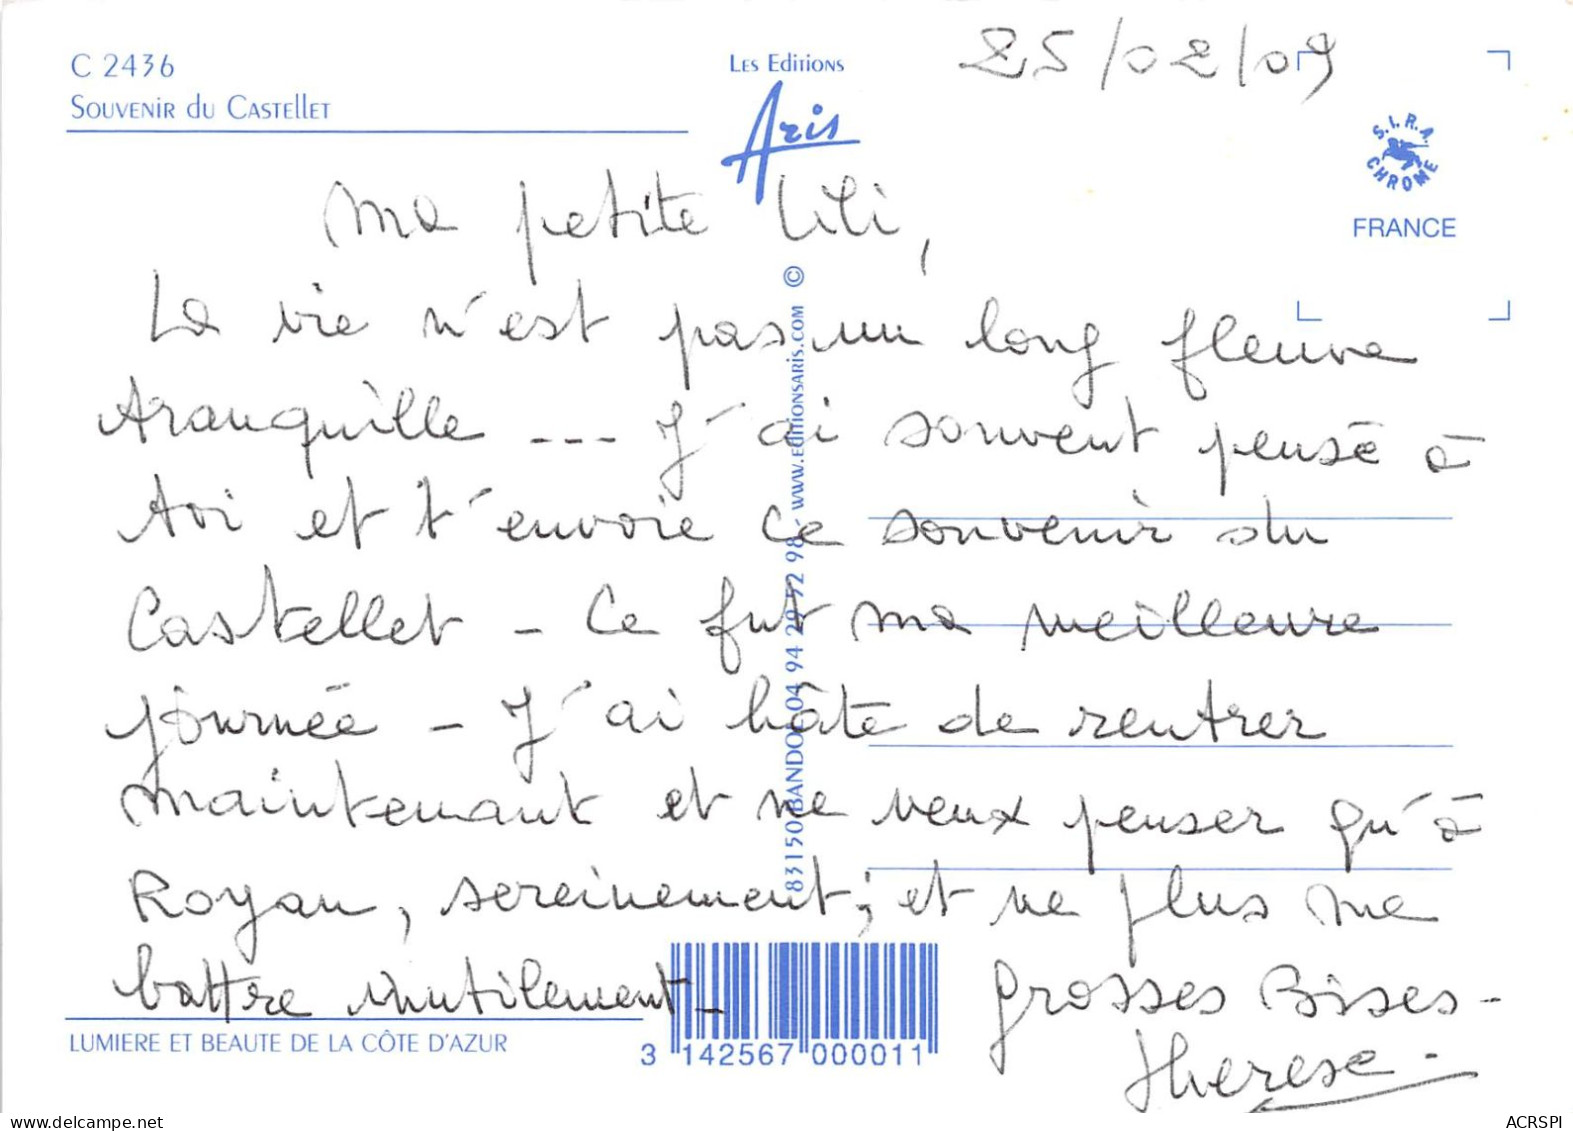 C 2436
Souvenir du Castellet
Les Editions
Aris
25/02/09
S.I.R.A.
CHROME
FRANCE
Ma petite Lili,
La vie n'est pas un long fleuve
tranquille --- J'ai souvent pensé à
toi et t'envoie ce souvenir du
Castellet - Ce fut ma meilleure
journée - J'ai hâte de rentrer
maintenant et ne veux penser qu'à
Royan, sereinement; et ne plus me
battre inutilement -
Grosses Bises -
Therese -
83150 BANDOL 04 94 29 52 98 - WWW.EDITIONSARIS.COM ©
LUMIERE ET BEAUTE DE LA CÔTE D'AZUR
3 142567 000011
delcampe.net
ACRSPI